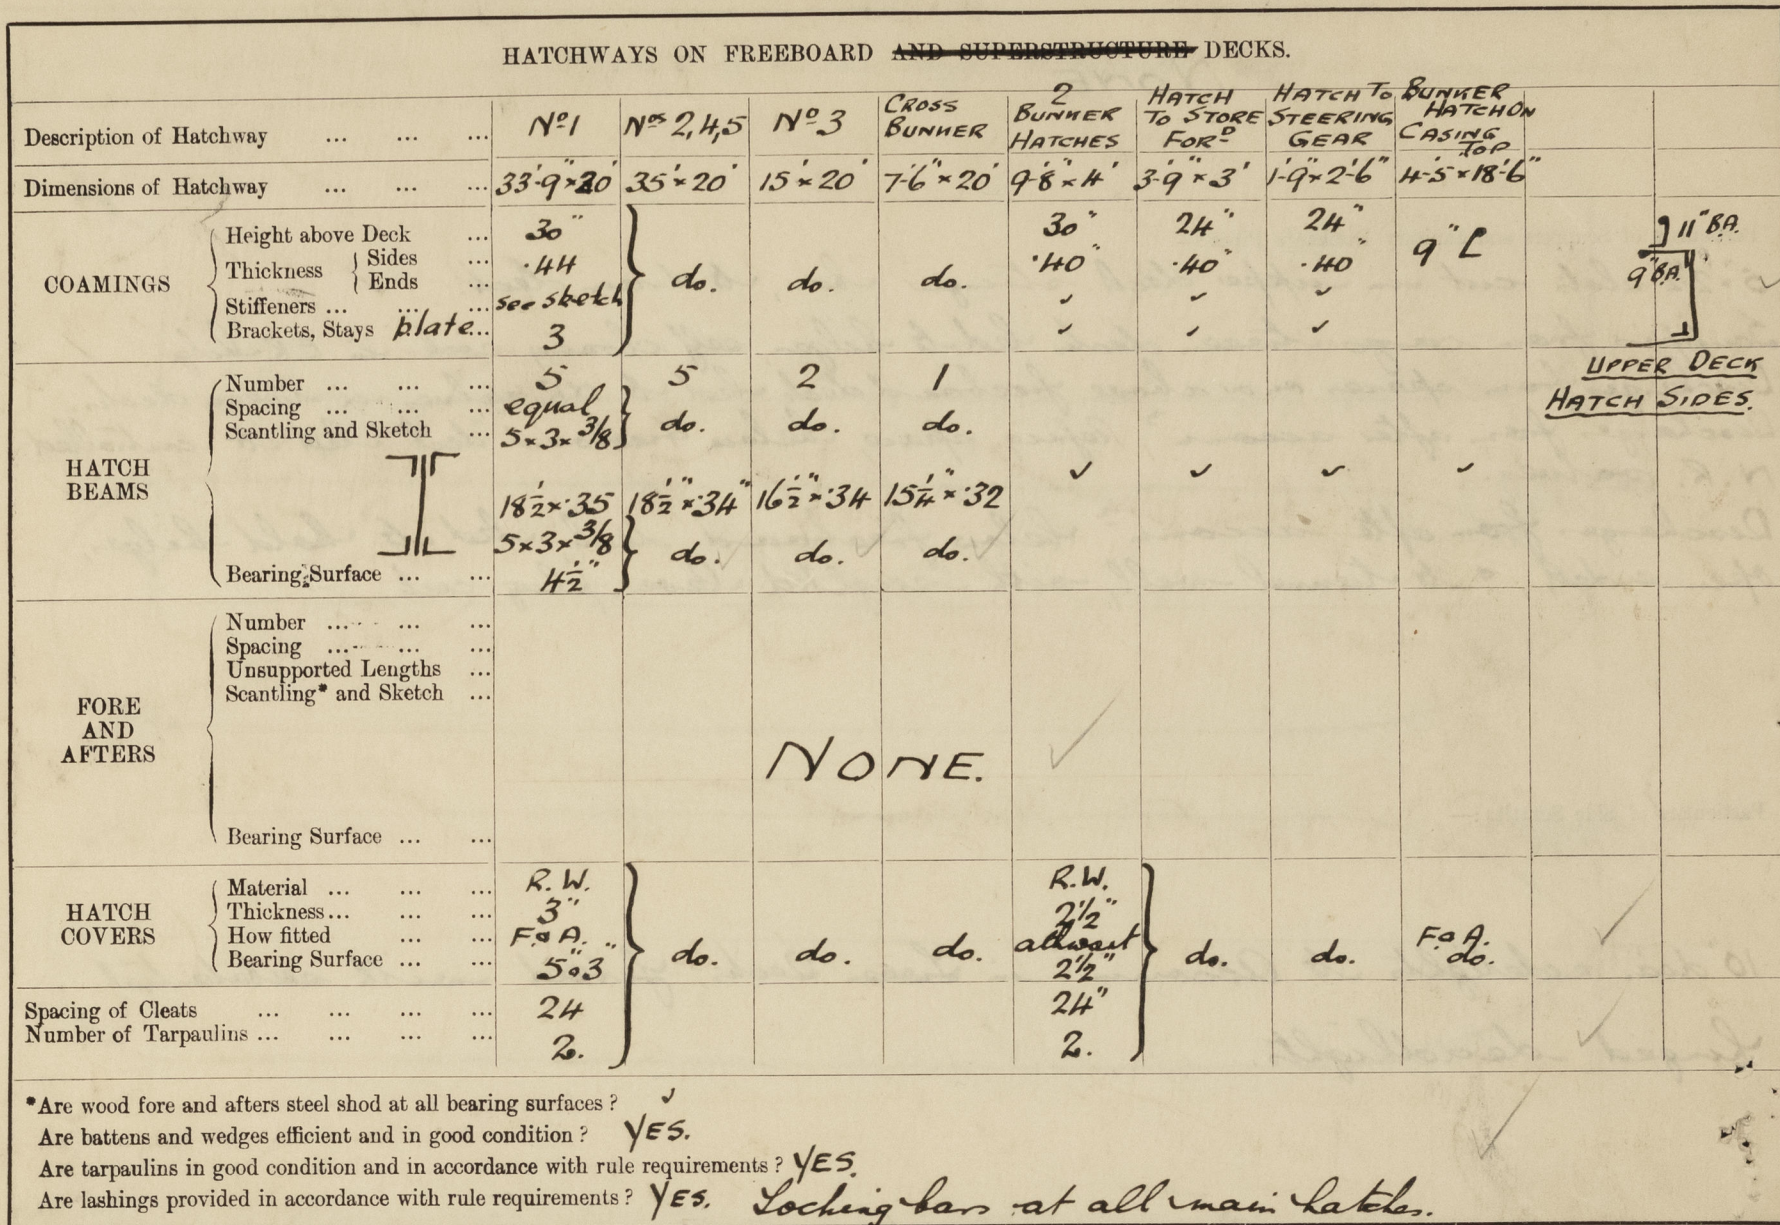 HATCHWAYS ON FREEBOARD AND SUPERSTRUCTURE DECKS.
Description of Hatchway ... ... ... Nº1 Nos 2,4,5 Nº3 CROSS BUNKER 2 BUNKER HATCHES HATCH TO STORE FORD HATCH TO STEERING GEAR BUNKER HATCH ON CASING TOP
Dimensions of Hatchway ... ... ... 33'-9"×20' 35'×20' 15'×20' 7'-6"×20' 9'-8"×4' 3'-9"×3' 1'-9"×2'-6" 4'-5"×18'-6"
COAMINGS
Height above Deck ... 30" 30" 24" 24" 9" [ 11" B.A.
Thickness { Sides ... .44 .40" .40" .40" 9" B.A.
Ends ... do. do. do.
Stiffeners ... ... ... see sketch ✓ ✓ ✓
Brackets, Stays plate ... 3 ✓ ✓ ✓
UPPER DECK
HATCH SIDES.
HATCH BEAMS
Number ... ... ... 5 5 2 1
Spacing ... ... ... equal
Scantling and Sketch ... 5×3×3/8 do. do. do.
✓ ✓ ✓ ✓
18½×.35 18½"×.34" 16½"×.34 15¼"×.32
5×3×3/8 do. do. do.
Bearing Surface ... ... 4½"
FORE AND AFTERS
Number ... ... ...
Spacing ... ... ...
Unsupported Lengths ...
Scantling* and Sketch ...
NONE.
Bearing Surface ... ...
HATCH COVERS
Material ... ... ... R.W. R.W.
Thickness ... ... ... 3" 2½"
How fitted ... ... F.&A. athwart F.&A.
Bearing Surface ... ... 5"&3" do. do. do. 2½" do. do. do.
Spacing of Cleats ... ... ... ... 24 24"
Number of Tarpaulins ... ... ... ... 2. 2.
*Are wood fore and afters steel shod at all bearing surfaces? ✓
Are battens and wedges efficient and in good condition? YES.
Are tarpaulins in good condition and in accordance with rule requirements? YES.
Are lashings provided in accordance with rule requirements? YES. Locking bars at all main hatches.